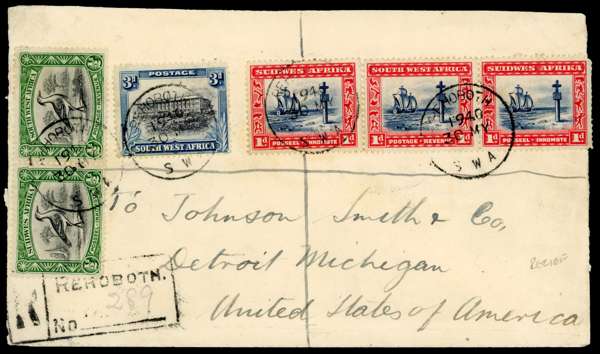 SOUTH WEST AFRICA
SUIDWES AFRIKA
3d POSTAGE 3d
SOUTH WEST AFRICA
SUIDWES AFRIKA
1d POSSEEL-INKOMSTE 1d
SOUTH WEST AFRICA
1d POSTAGE-REVENUE 1d
SUIDWES AFRIKA
1d POSSEEL-INKOMSTE 1d
REHOBOTH
1940
30 MY
S W A
To Johnson Smith & Co,
Detroit Michigan
United States of America
R
REHOBOTH.
No 289